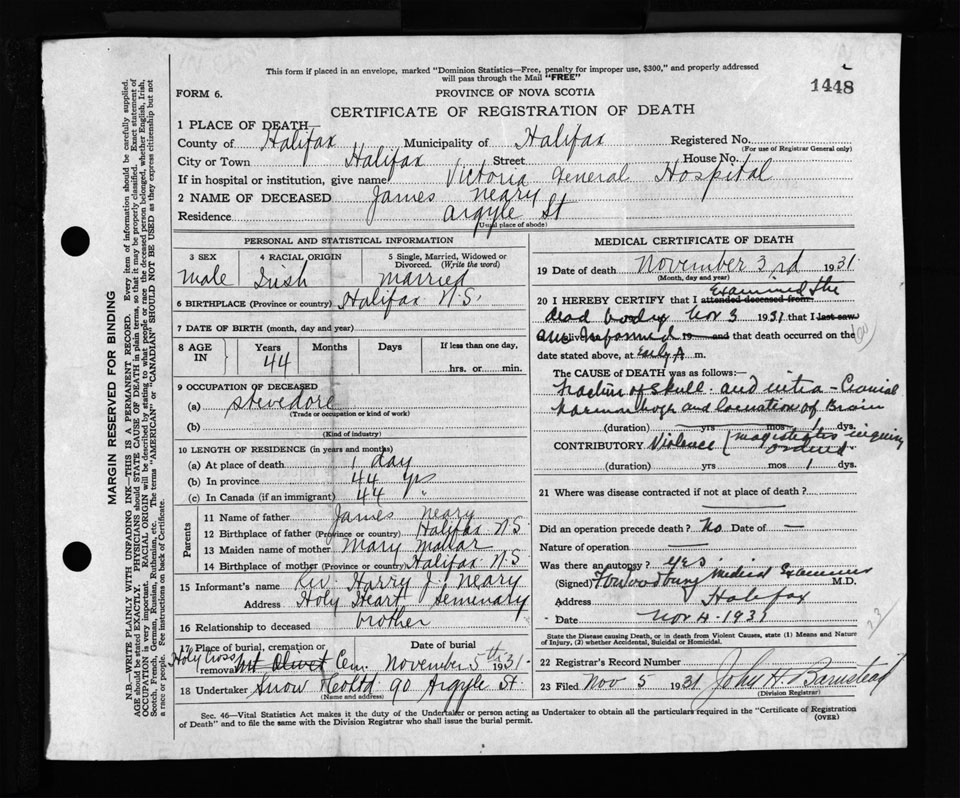 This form if placed in an envelope, marked "Dominion Statistics—Free, penalty for improper use, $300," and properly addressed
will pass through the Mail "FREE"
1448
FORM 6.
PROVINCE OF NOVA SCOTIA
CERTIFICATE OF REGISTRATION OF DEATH
1 PLACE OF DEATH—
County of Halifax Municipality of Halifax Registered No.
(For use of Registrar General only)
City or Town Halifax Street House No.
If in hospital or institution, give name Victoria General Hospital
2 NAME OF DECEASED James Neary
Residence Argyle St
(Usual place of abode)
MARGIN RESERVED FOR BINDING
N.B.—WRITE PLAINLY WITH UNFADING INK—THIS IS A PERMANENT RECORD. Every item of information should be carefully supplied.
AGE should be stated EXACTLY. PHYSICIANS should STATE CAUSE OF DEATH in plain terms, so that it may be properly classified. Exact statement of
OCCUPATION is very important. RACIAL ORIGIN will be described by stating to what people or race the deceased person belonged, whether English, Irish,
Scotch, French, German, Russian, Ruthenian, etc. The terms "AMERICAN" or "CANADIAN" SHOULD NOT BE USED as they express citizenship but not
a race or people. See instructions on back of Certificate.
PERSONAL AND STATISTICAL INFORMATION
3 SEX 4 RACIAL ORIGIN 5 Single, Married, Widowed or
Divorced. (Write the word)
Male Irish Married
6 BIRTHPLACE (Province or country) Halifax N.S.
7 DATE OF BIRTH (month, day and year)
8 AGE IN Years Months Days If less than one day,
44 hrs. or min.
9 OCCUPATION OF DECEASED
(a) Stevedore
(Trade or occupation or kind of work)
(b)
(Kind of industry)
10 LENGTH OF RESIDENCE (in years and months)
(a) At place of death 1 day
(b) In province 44 yrs
(c) In Canada (if an immigrant) 44 "
Parents
11 Name of father James Neary
12 Birthplace of father (Province or country) Halifax N.S
13 Maiden name of mother Mary
14 Birthplace of mother (Province or country) Halifax N.S
15 Informant's name Rev. Harry J. Neary
Address Holy Heart Semenary
16 Relationship to deceased brother
17 Place of burial, cremation or removal Date of burial
Holy Cross Mt Olivet Cem. November 5th 1931.
18 Undertaker Snow & Co Ltd 90 Argyle St.
(Name and address)
MEDICAL CERTIFICATE OF DEATH
19 Date of death November 3rd 1931.
(Month, day and year)
Examined the
20 I HEREBY CERTIFY that I attended deceased from
dead body Nov 3 1931 that I last saw
am informed alive 19 and that death occurred on the
date stated above, at Early A m.
The CAUSE of DEATH was as follows:—
Fracture of Skull. and intra-Cranial
haemorrhage and laceration of Brain
(duration) yrs mos 1 dys.
CONTRIBUTORY Violence (magistrates inquiry
ordered
(duration) yrs mos 1 dys.
21 Where was disease contracted if not at place of death?
Did an operation precede death? No Date of —
Nature of operation —
Was there an autopsy? yes
(Signed) Woodbury Medical Examiner M.D.
Address Halifax
Date Nov 4 - 1931
State the Disease causing Death, or in death from Violent Causes, state (1) Means and Nature
of Injury, (2) whether Accidental, Suicidal or Homicidal.
23/
22 Registrar's Record Number
23 Filed Nov 5 1931 John H. Barnstead
(Division Registrar)
Sec. 46—Vital Statistics Act makes it the duty of the Undertaker or person acting as Undertaker to obtain all the particulars required in the "Certificate of Registration
of Death" and to file the same with the Division Registrar who shall issue the burial permit.
(OVER)